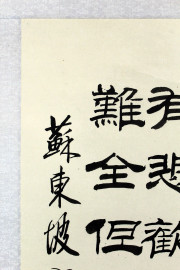 有悲歡
難全但
蘇東坡